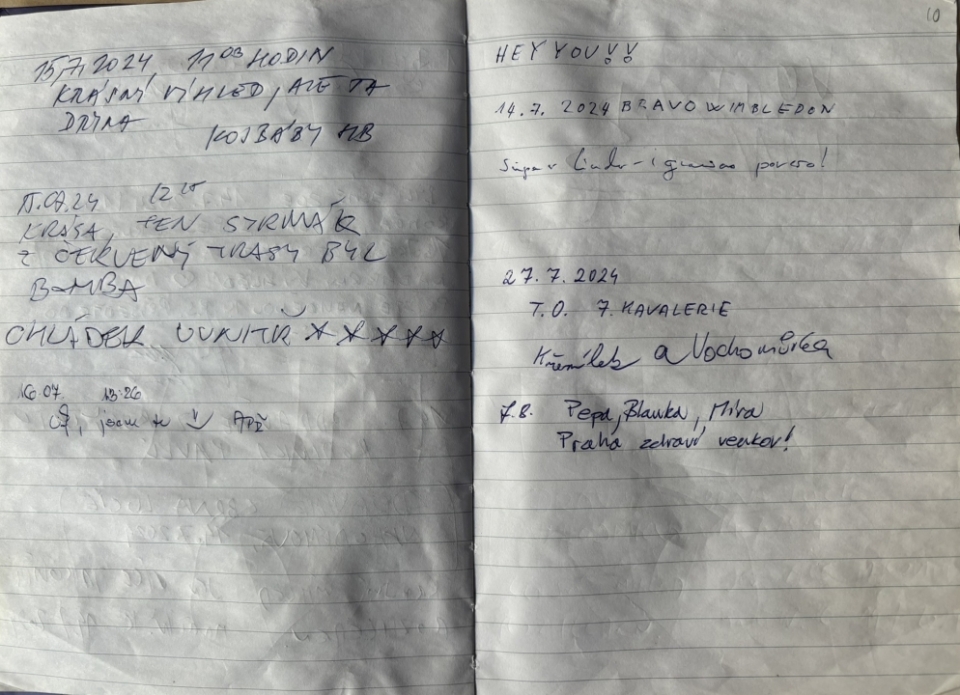 15.7.2024 11⁰³ HODIN
KRÁSNÝ VÝHLED, ALE TA
DRINA
KOJBABY HB
15.07.24 12¹⁵
KRÁSA, TEN STRMÁK
Z ČERVENÝ TRASY BYL
BOMBA
CHLÁDEK UVNITŘ ☆☆☆☆☆
16.07. 13:26
jsem tu ↓
10
HEY YOU!!
14.7. 2024 BRAVO WIMBLEDON
27.7.2024
T.O. 7. KAVALERIE
Křemílek a Vochomůrka
7.8. Pepa, Blanka, Míra
Praha zdraví venkov!